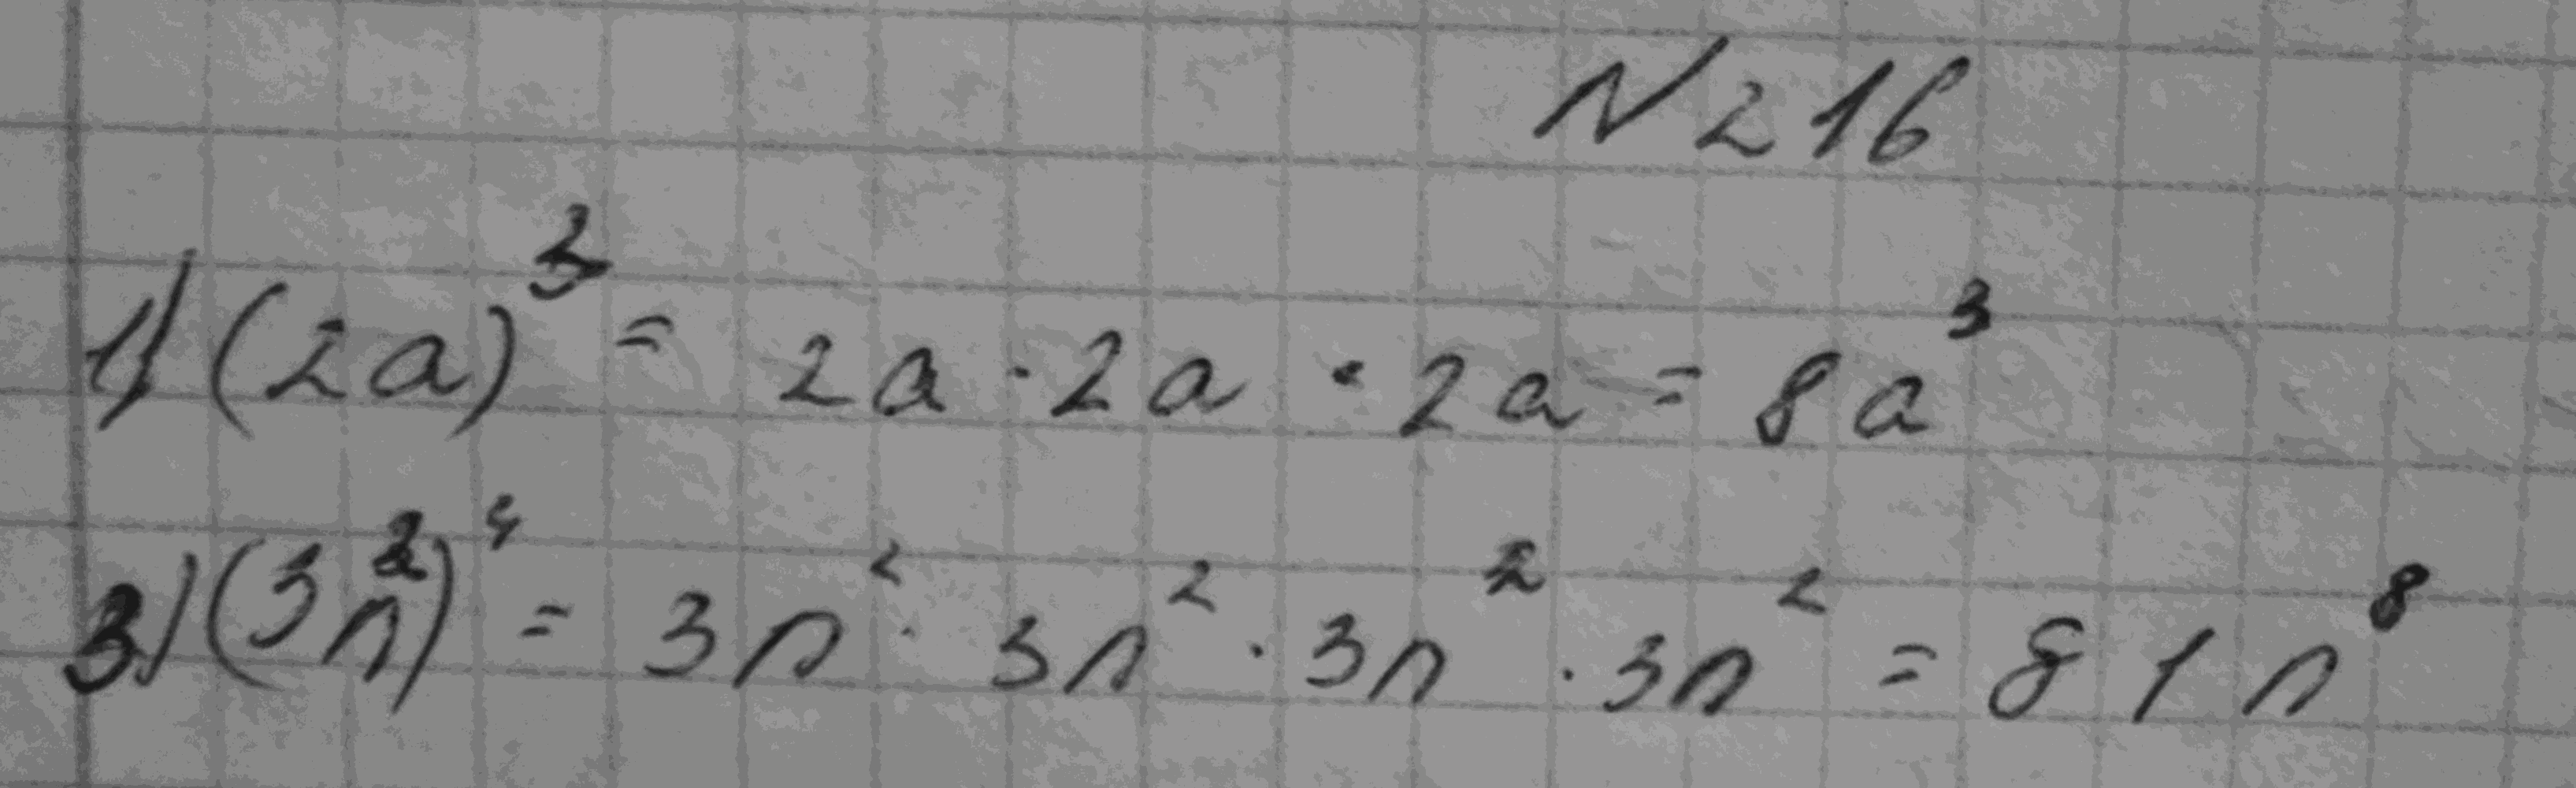 N 216
1) (2a)³ = 2a · 2a · 2a = 8a³
3) (3n²)⁴ = 3n² · 3n² · 3n² · 3n² = 81n⁸